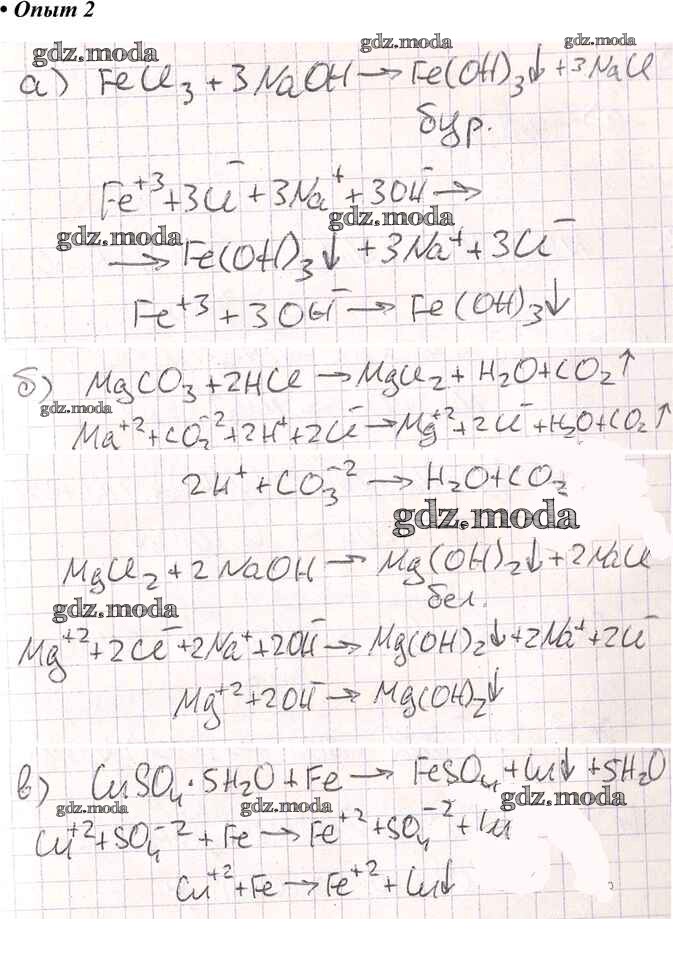 • Опыт 2
gdz.moda gdz.moda gdz.moda
а) FeCl₃ + 3NaOH → Fe(OH)₃↓ + 3NaCl
бур.
Fe⁺³ + 3Cl⁻ + 3Na⁺ + 3OH⁻ →
gdz.moda gdz.moda
→ Fe(OH)₃↓ + 3Na⁺ + 3Cl⁻
Fe⁺³ + 3OH⁻ → Fe(OH)₃↓
б) MgCO₃ + 2HCl → MgCl₂ + H₂O + CO₂↑
gdz.moda
Ma⁺² + CO₃⁻² + 2H⁺ + 2Cl⁻ → Mg⁺² + 2Cl⁻ + H₂O + CO₂↑
2H⁺ + CO₃⁻² → H₂O + CO₂
gdz.moda
MgCl₂ + 2NaOH → Mg(OH)₂↓ + 2NaCl
gdz.moda бел.
Mg⁺² + 2Cl⁻ + 2Na⁺ + 2OH⁻ → Mg(OH)₂↓ + 2Na⁺ + 2Cl⁻
Mg⁺² + 2OH⁻ → Mg(OH)₂↓
в) CuSO₄·5H₂O + Fe → FeSO₄ + Cu↓ + 5H₂O
gdz.moda gdz.moda gdz.moda
Cu⁺² + SO₄⁻² + Fe → Fe⁺² + SO₄⁻² + Cu
Cu⁺² + Fe → Fe⁺² + Cu↓